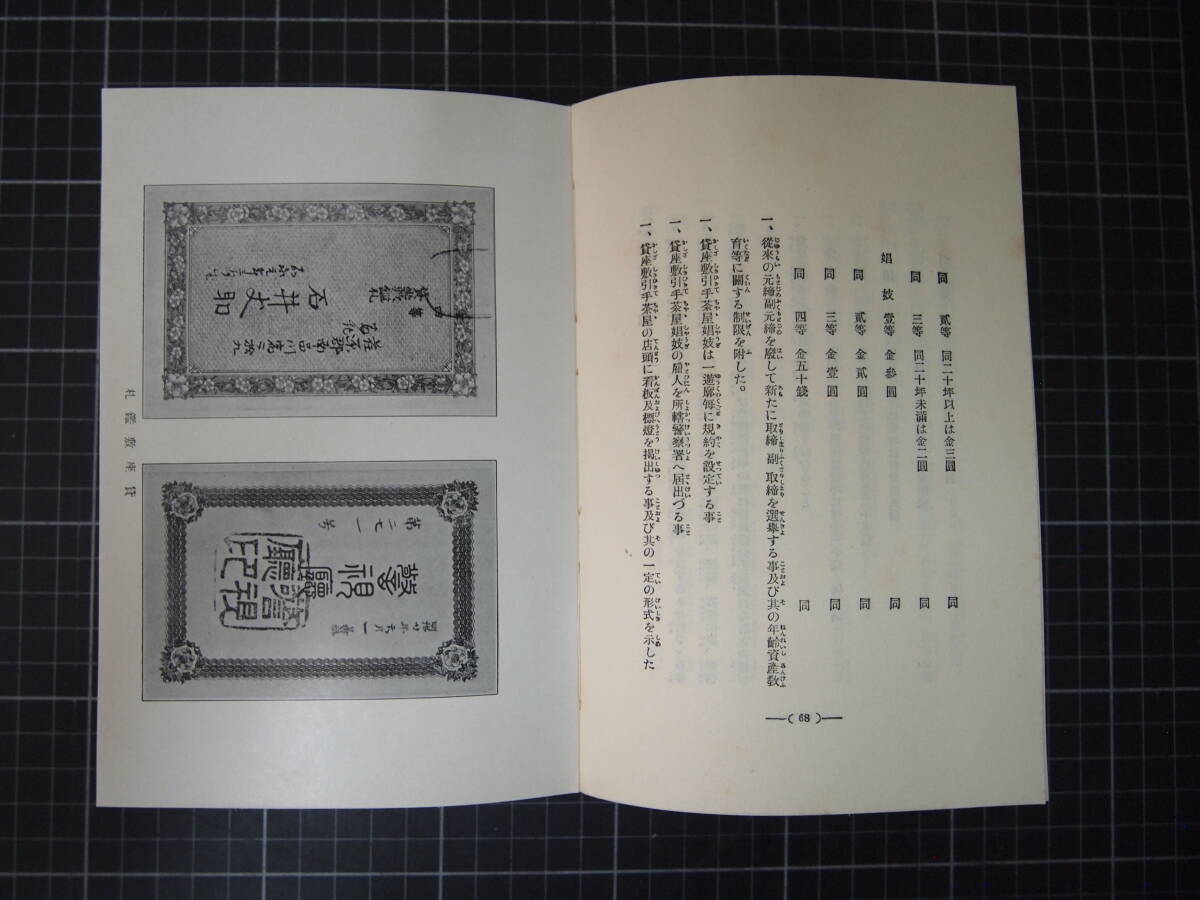 同　貳等　同二十坪以上は金三圓　同
同　三等　同二十坪未滿は金二圓　同
娼妓　壹等　金參圓　同
同　貳等　金貳圓　同
同　三等　金壹圓　同
同　四等　金五十錢　同
一、從來の元締副元締を廢して新たに取締副取締を選擧する事及び其の年齡資產敎
育等に關する制限を附した。
一、貸座敷引手茶屋娼妓は一遊廓每に規約を設定する事
一、貸座敷引手茶屋娼妓の雇人を所轄警察署へ屆出づる事
一、貸座敷引手茶屋の店頭に看板及標燈を揭出する事及び其の一定の形式を示した
―( 68 )―
石井丈助
第二七一号
警視廳
警視廳印
札鑑敷座貸